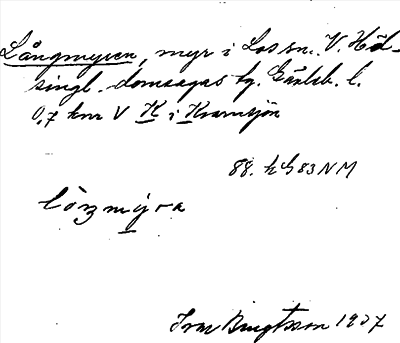 Långmyren, myr i Los sn. V. Häl-
singl. domsagas tg. Gävleb. l.
0,7 km V K i Kvarnsjön
88. h 983 NM
lòŋmy̆ra
Ivar Bengtsson 1937